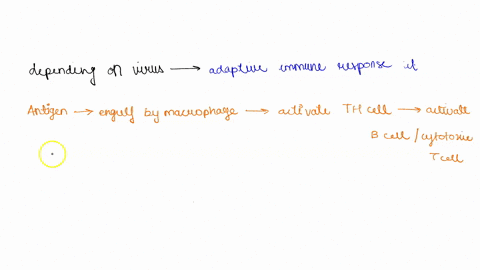 depending on virus → adaptive immune response it
Antigen → engulf by macrophage → activate TH cell → activate
B cell / cytotoxic
T cell